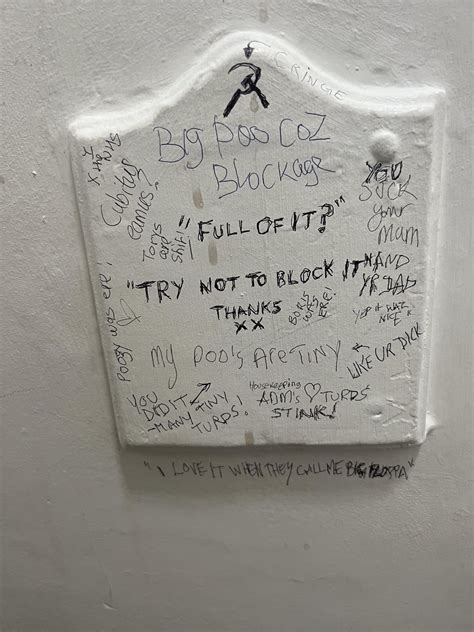 CRINGE
BIG POO COZ
Blockage
"FULL OF IT?"
"TRY NOT TO BLOCK IT"
THANKS
XX
I ♡ NHS
X
Tory's
are
shit!
BORIS
WAS
ERE!
YOU
SUCK
your
Mum
AND
YR DAD
YEP IT WAZ
NICE
LIKE UR DICK
Poogy was ere!
My POO'S ARE TINY
YOU
DID IT
MANY TINY
TURDS!
Housekeeping
ADM'S ♡ TURDS
STINK!
"I LOVE IT WHEN THEY CALL ME BIG FLOPPA"